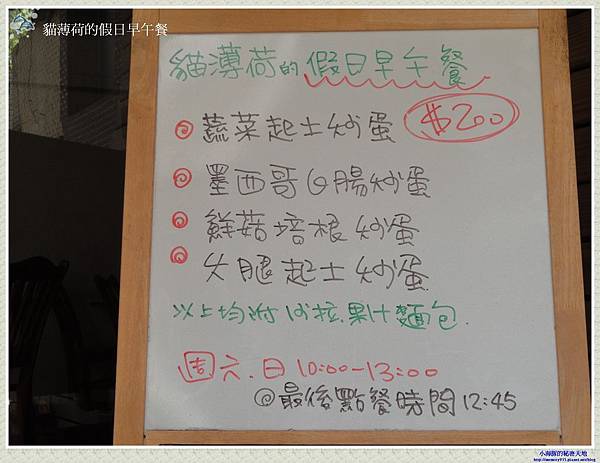 貓薄荷的假日早午餐
貓薄荷的假日早午餐
蔬菜起士炒蛋 $200
墨西哥G腸炒蛋
鮮菇培根炒蛋
火腿起士炒蛋
以上均附沙拉.果汁麵包.
週六.日 10:00-13:00
@最後點餐時間12:45
小海豚的秘密天地